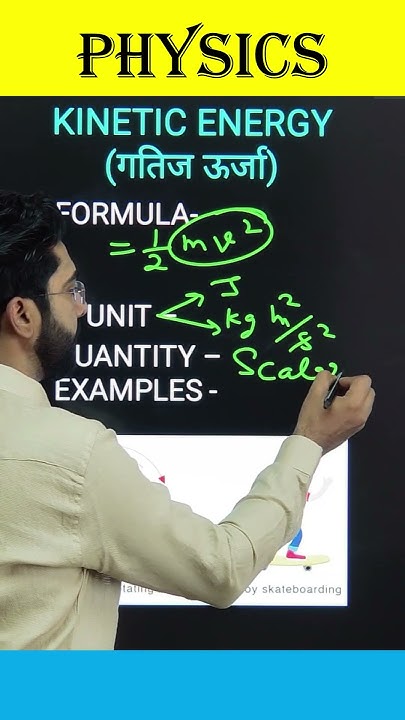 PHYSICS
KINETIC ENERGY
(गतिज ऊर्जा)
FORMULA-
= 1/2 mv²
J
UNIT –
kg m²/s²
UANTITY – Scala
EXAMPLES -
tating
by skateboarding